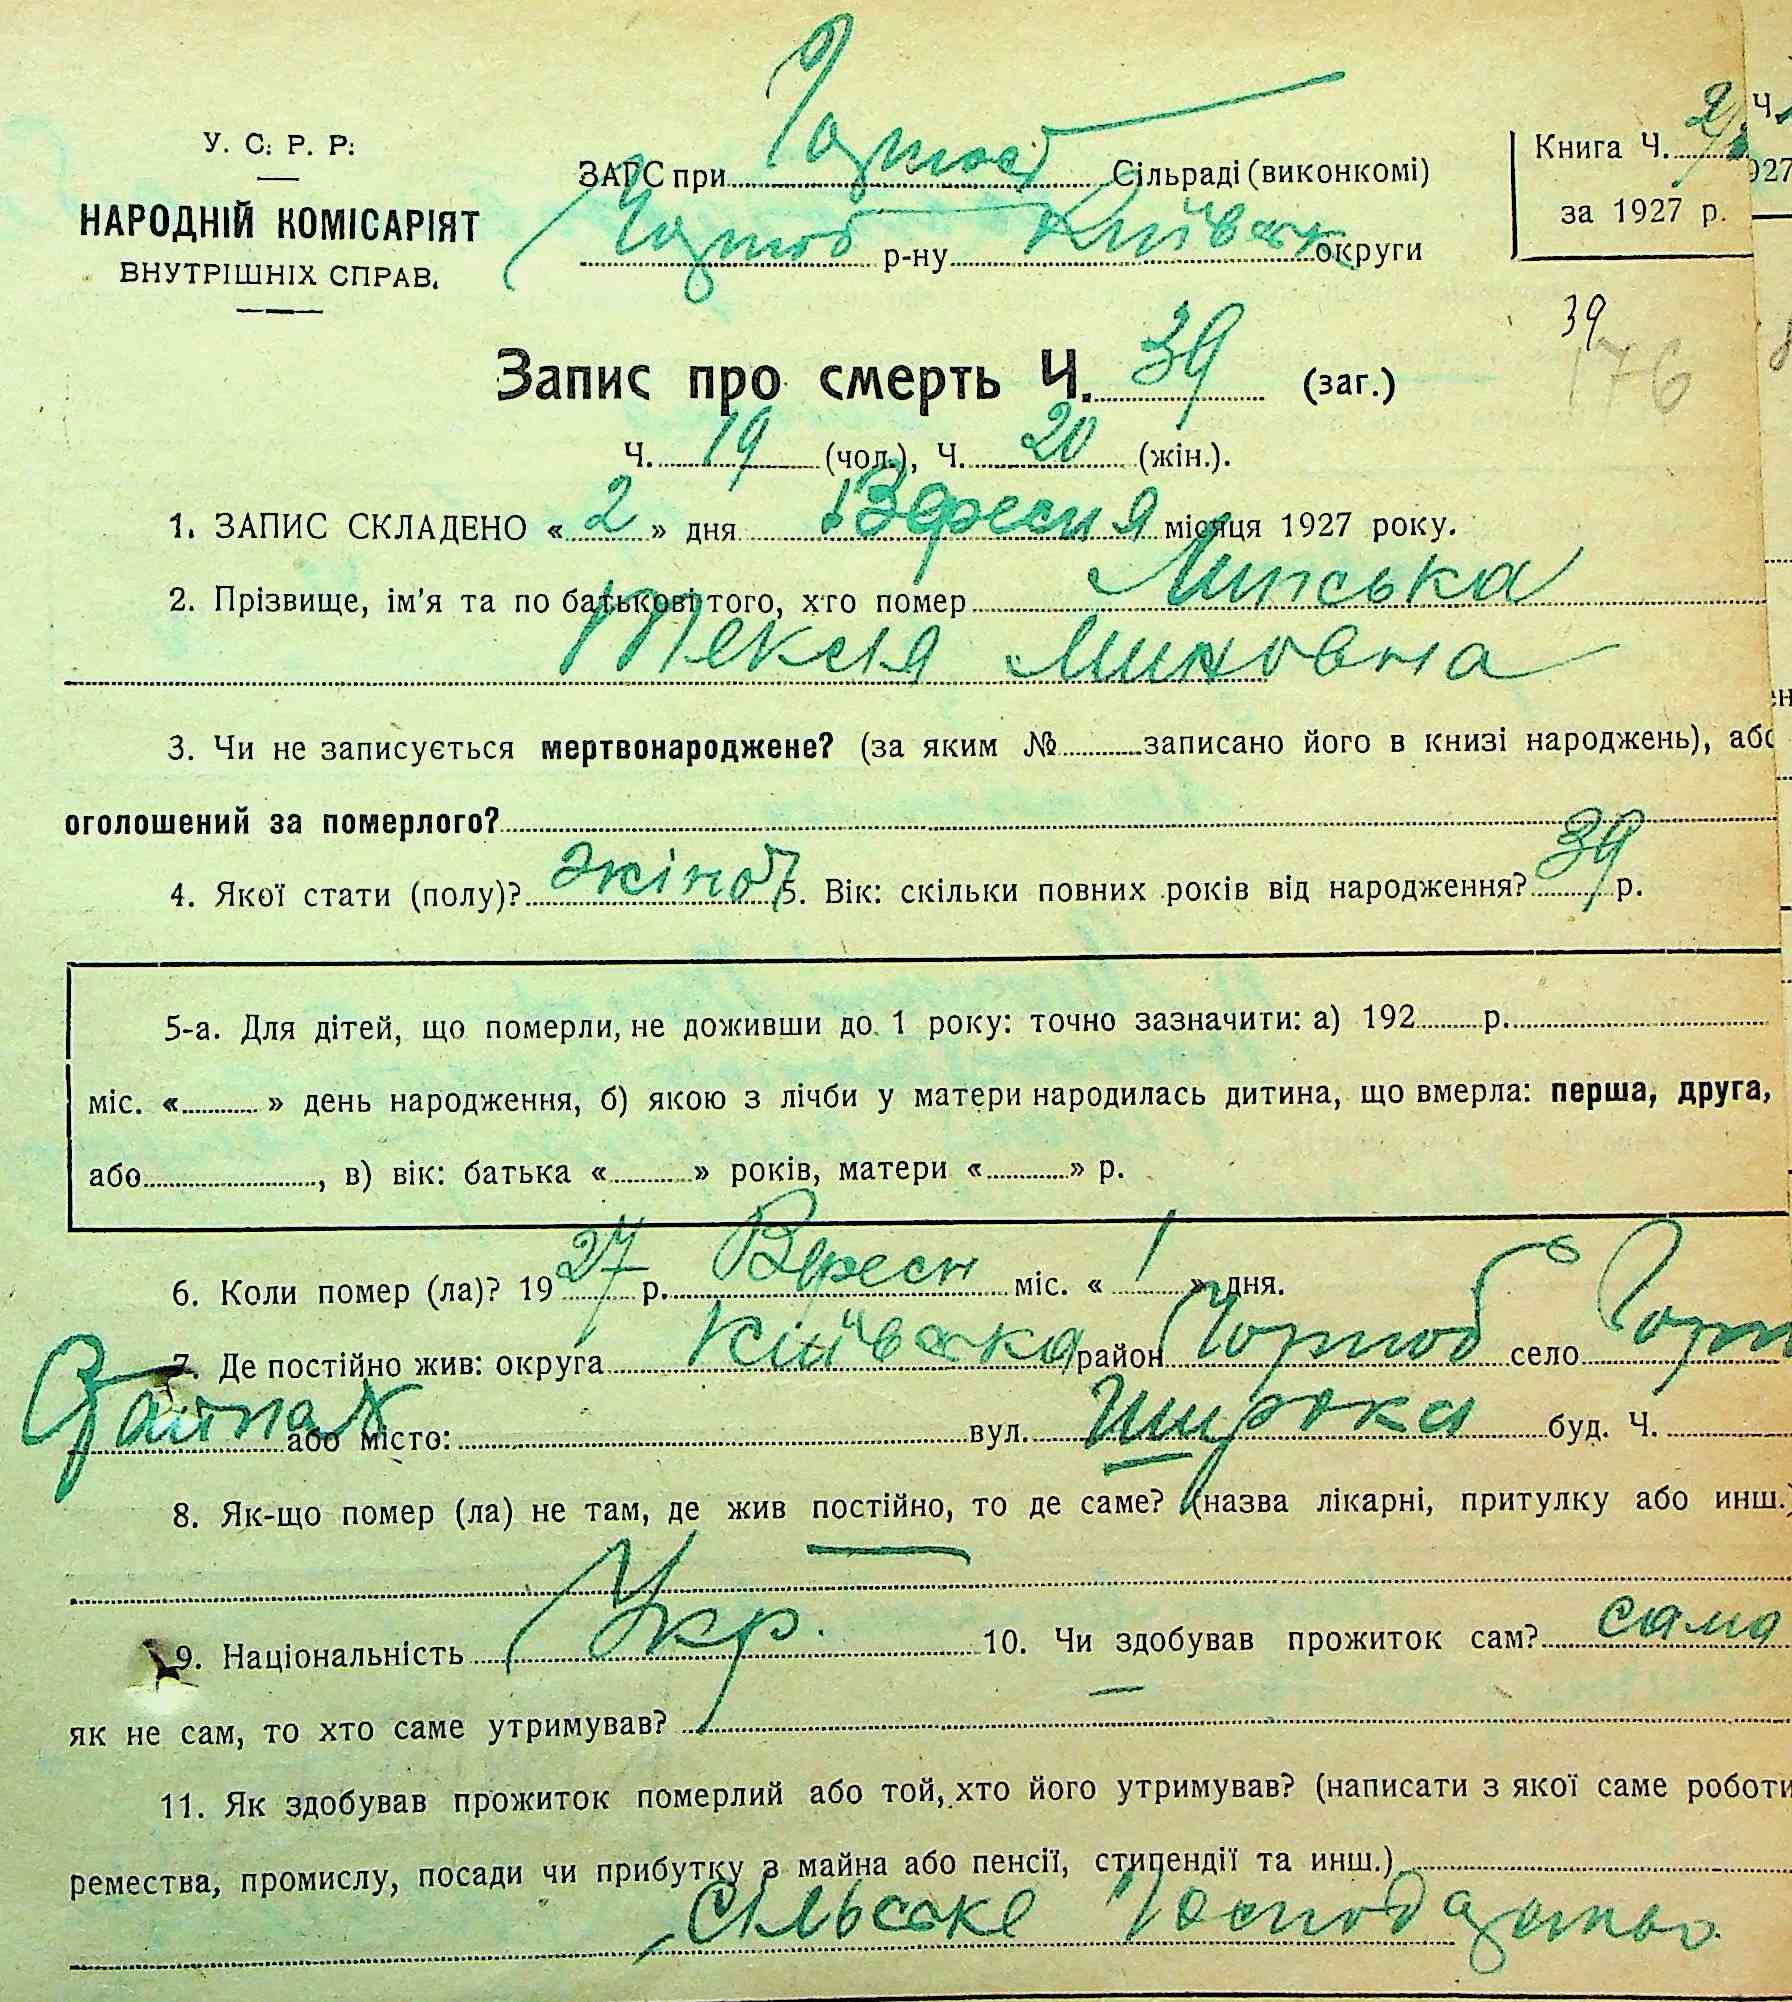 У. С. Р. Р.
НАРОДНІЙ КОМІСАРІЯТ
ВНУТРІШНІХ СПРАВ.
ЗАГС при Сільраді (виконкомі)
р-ну Київськ округи
Книга Ч.
за 1927 р.
39
176
Запис про смерть Ч. 39 (заг.)
Ч. 19 (чол.), Ч. 20 (жін.).
1. ЗАПИС СКЛАДЕНО « 2 » дня Вересня місяця 1927 року.
2. Прізвище, ім'я та по батькові того, хто помер Липська
Текля Миновна
3. Чи не записується мертвонароджене? (за яким № записано його в книзі народжень), або
оголошений за померлого?
4. Якої стати (полу)? жіноч 5. Вік: скільки повних років від народження? 39 р.
5-а. Для дітей, що померли, не доживши до 1 року: точно зазначити: а) 192 р.
міс. « » день народження, б) якою з лічби у матери народилась дитина, що вмерла: перша, друга,
або , в) вік: батька « » років, матери « » р.
6. Коли помер (ла)? 1927 р. Вересн міс. « 1 » дня.
7. Де постійно жив: округа Київська район село
або місто: вул. Широка буд. Ч.
8. Як-що помер (ла) не там, де жив постійно, то де саме? (назва лікарні, притулку або инш.)
9. Національність Укр. 10. Чи здобував прожиток сам? сама
як не сам, то хто саме утримував?
11. Як здобував прожиток померлий або той, хто його утримував? (написати з якої саме роботи
ремества, промислу, посади чи прибутку з майна або пенсії, стипендії та инш.)
Сільське Господарство.